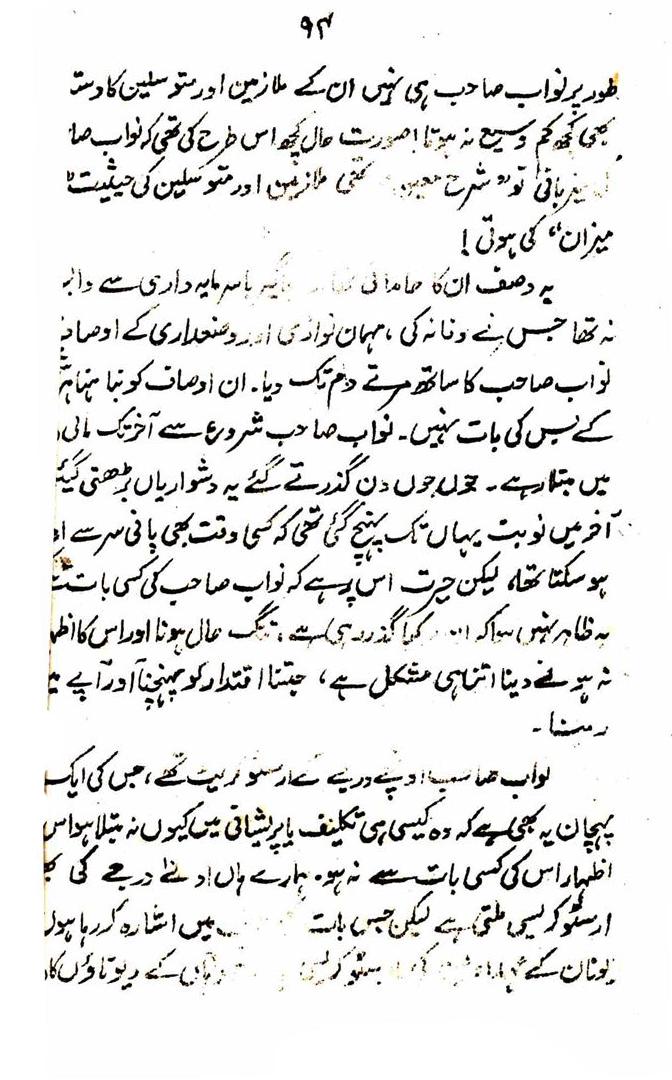 ۹۴
طور پر نواب صاحب ہی نہیں ان کے ملازمین اور متوسلین کا دست
بھی کچھ کم وسیع نہ ہوتا! صورت حال کچھ اس طرح کی تھی کہ نواب صا
تو" شرح ملازمین اور متوسلین کی حیثیت
میزان" کی ہوتی!
یہ وصف ان کا سرمایہ داری سے وا
نہ تھا جس نے وفا نہ کی، مہمان نوازی اور وضعداری کے اوصا
نواب صاحب کا ساتھ مرتے دم تک دیا۔ ان اوصاف کو نباہنا
کے بس کی بات نہیں۔ نواب صاحب شروع سے آخر تک مالی
میں مبتلا رہے۔ جوں جوں دن گذرتے گئے یہ دشواریاں بڑھتی گئیں
آخر میں نوبت یہاں تک پہنچ گئی تھی کہ کسی وقت بھی پانی سر سے
ہو سکتا تھا، لیکن حیرت اس پر ہے کہ نواب صاحب کی کسی بات
یہ ظاہر نہیں ہوا کہ کیا گذر رہی ہے، تنگ حال ہونا اور اس کا اظہا
نہ ہونے دینا اتنا ہی مشکل ہے، جتنا اقتدار کو پہنچنا اور آپے میں
رہنا۔
نواب صاحب اونچے درجے کے ارسٹوکریٹ تھے، جس کی ایک
پہچان یہ بھی ہے کہ وہ کیسی ہی تکلیف یا پریشانی میں کیوں نہ مبتلا ہو اس
اظہار اس کی کسی بات سے نہ ہو۔ ہمارے ہاں ادنےٰ درجے کی
ارسٹوکریسی ملتی ہے لیکن جس بات میں اشارہ کر رہا ہوں
یونان کے کے دیوتاؤں کا